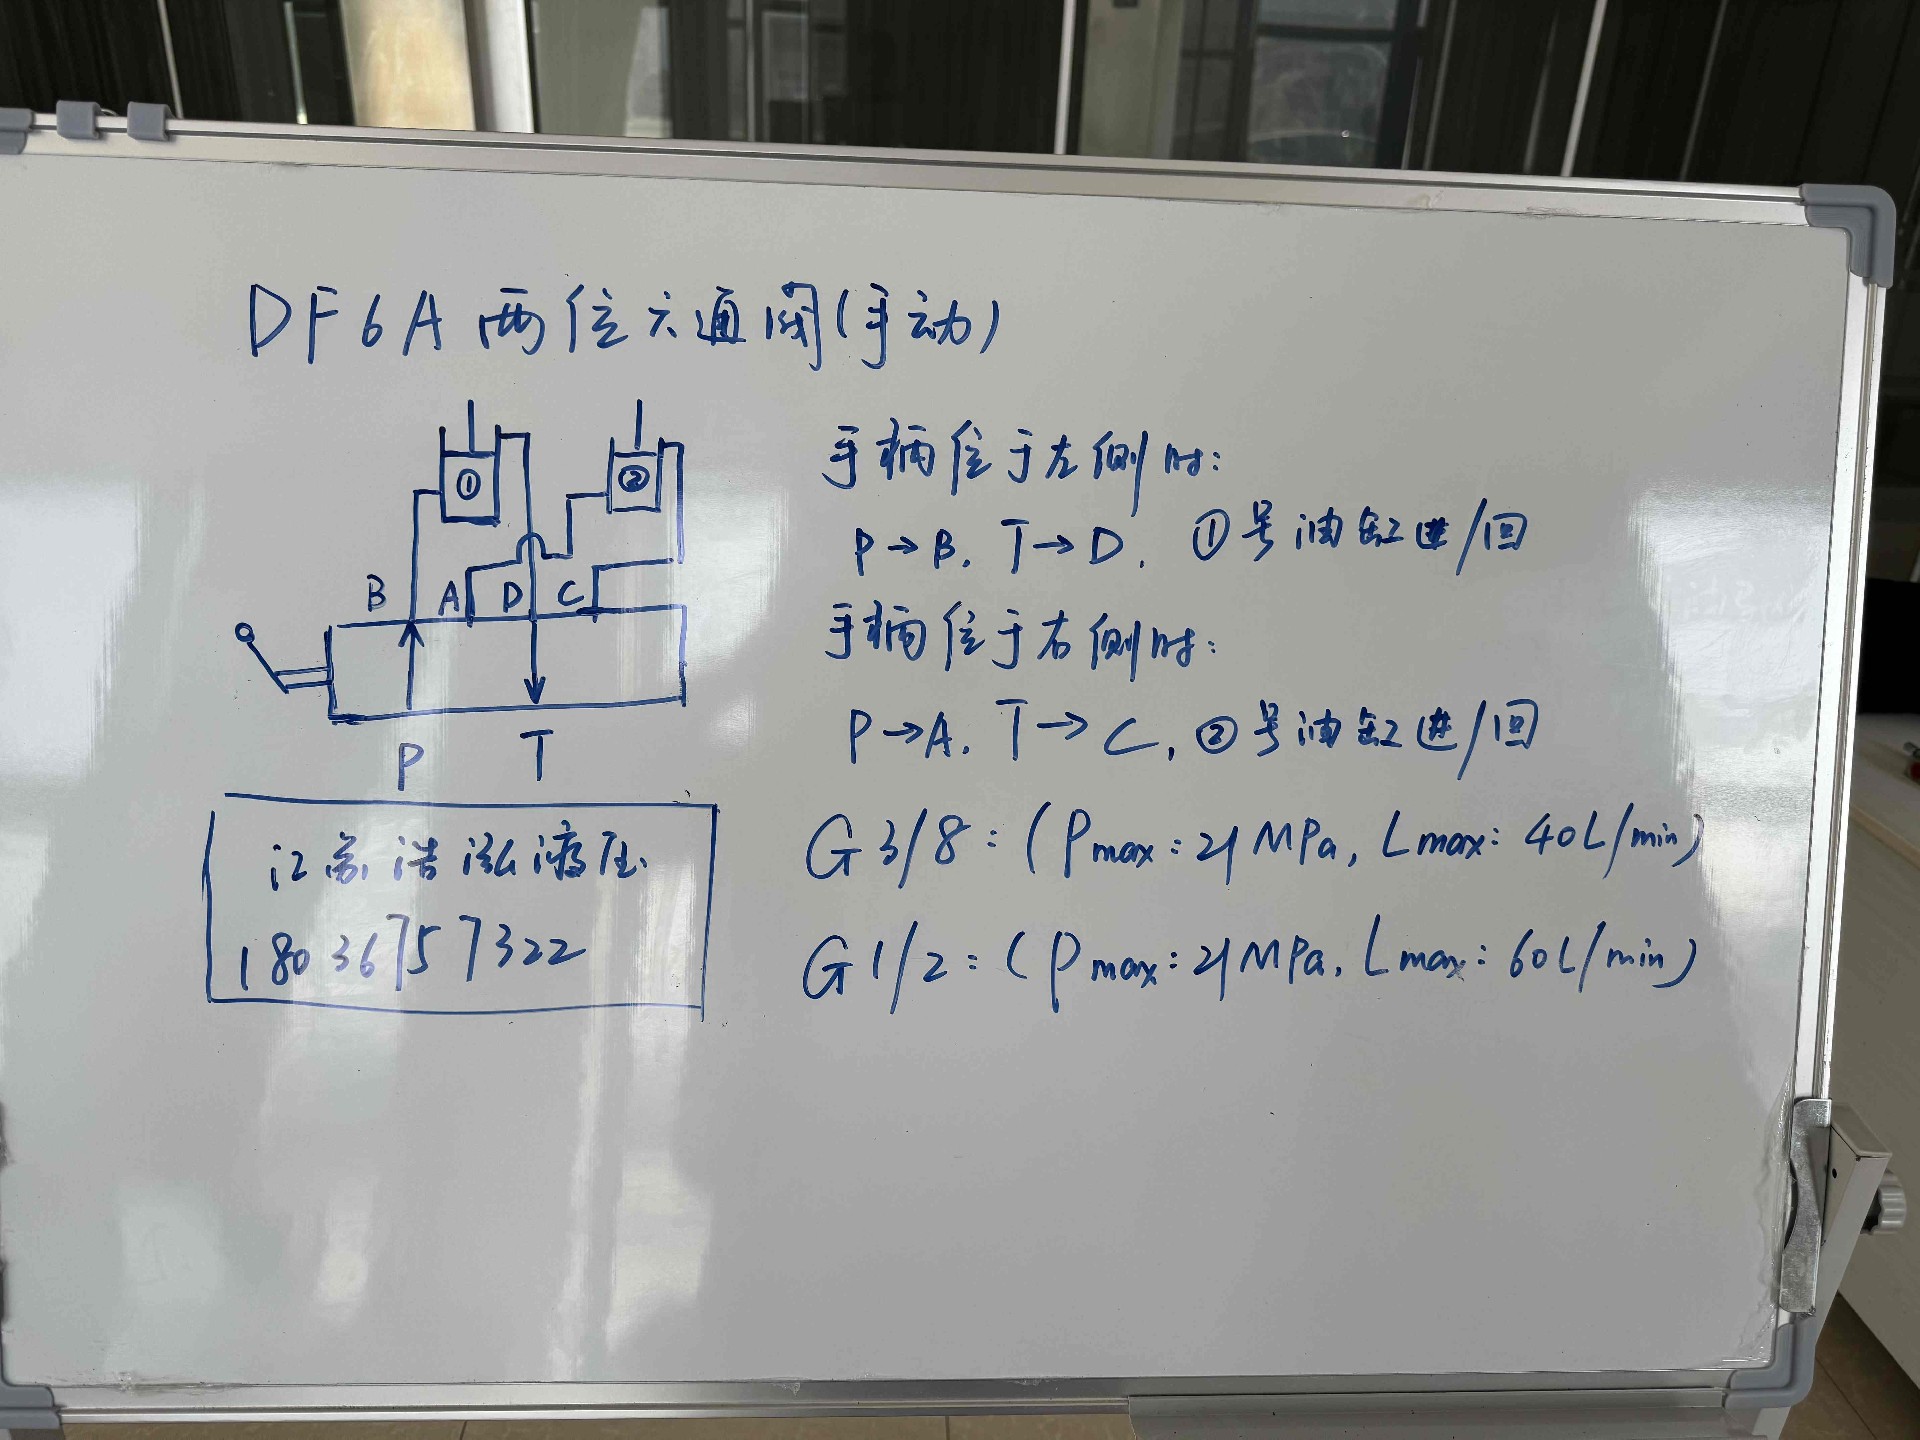 DF6A两位六通阀(手动)
① ②
B A D C
P T
江苏浩泓液压
18036757322
手柄位于左侧时:
P→B. T→D. ①号油缸进/回
手柄位于右侧时:
P→A. T→C, ②号油缸进/回
G3/8:(Pmax:21MPa, Lmax:40L/min)
G1/2:(Pmax:21MPa, Lmax:60L/min)